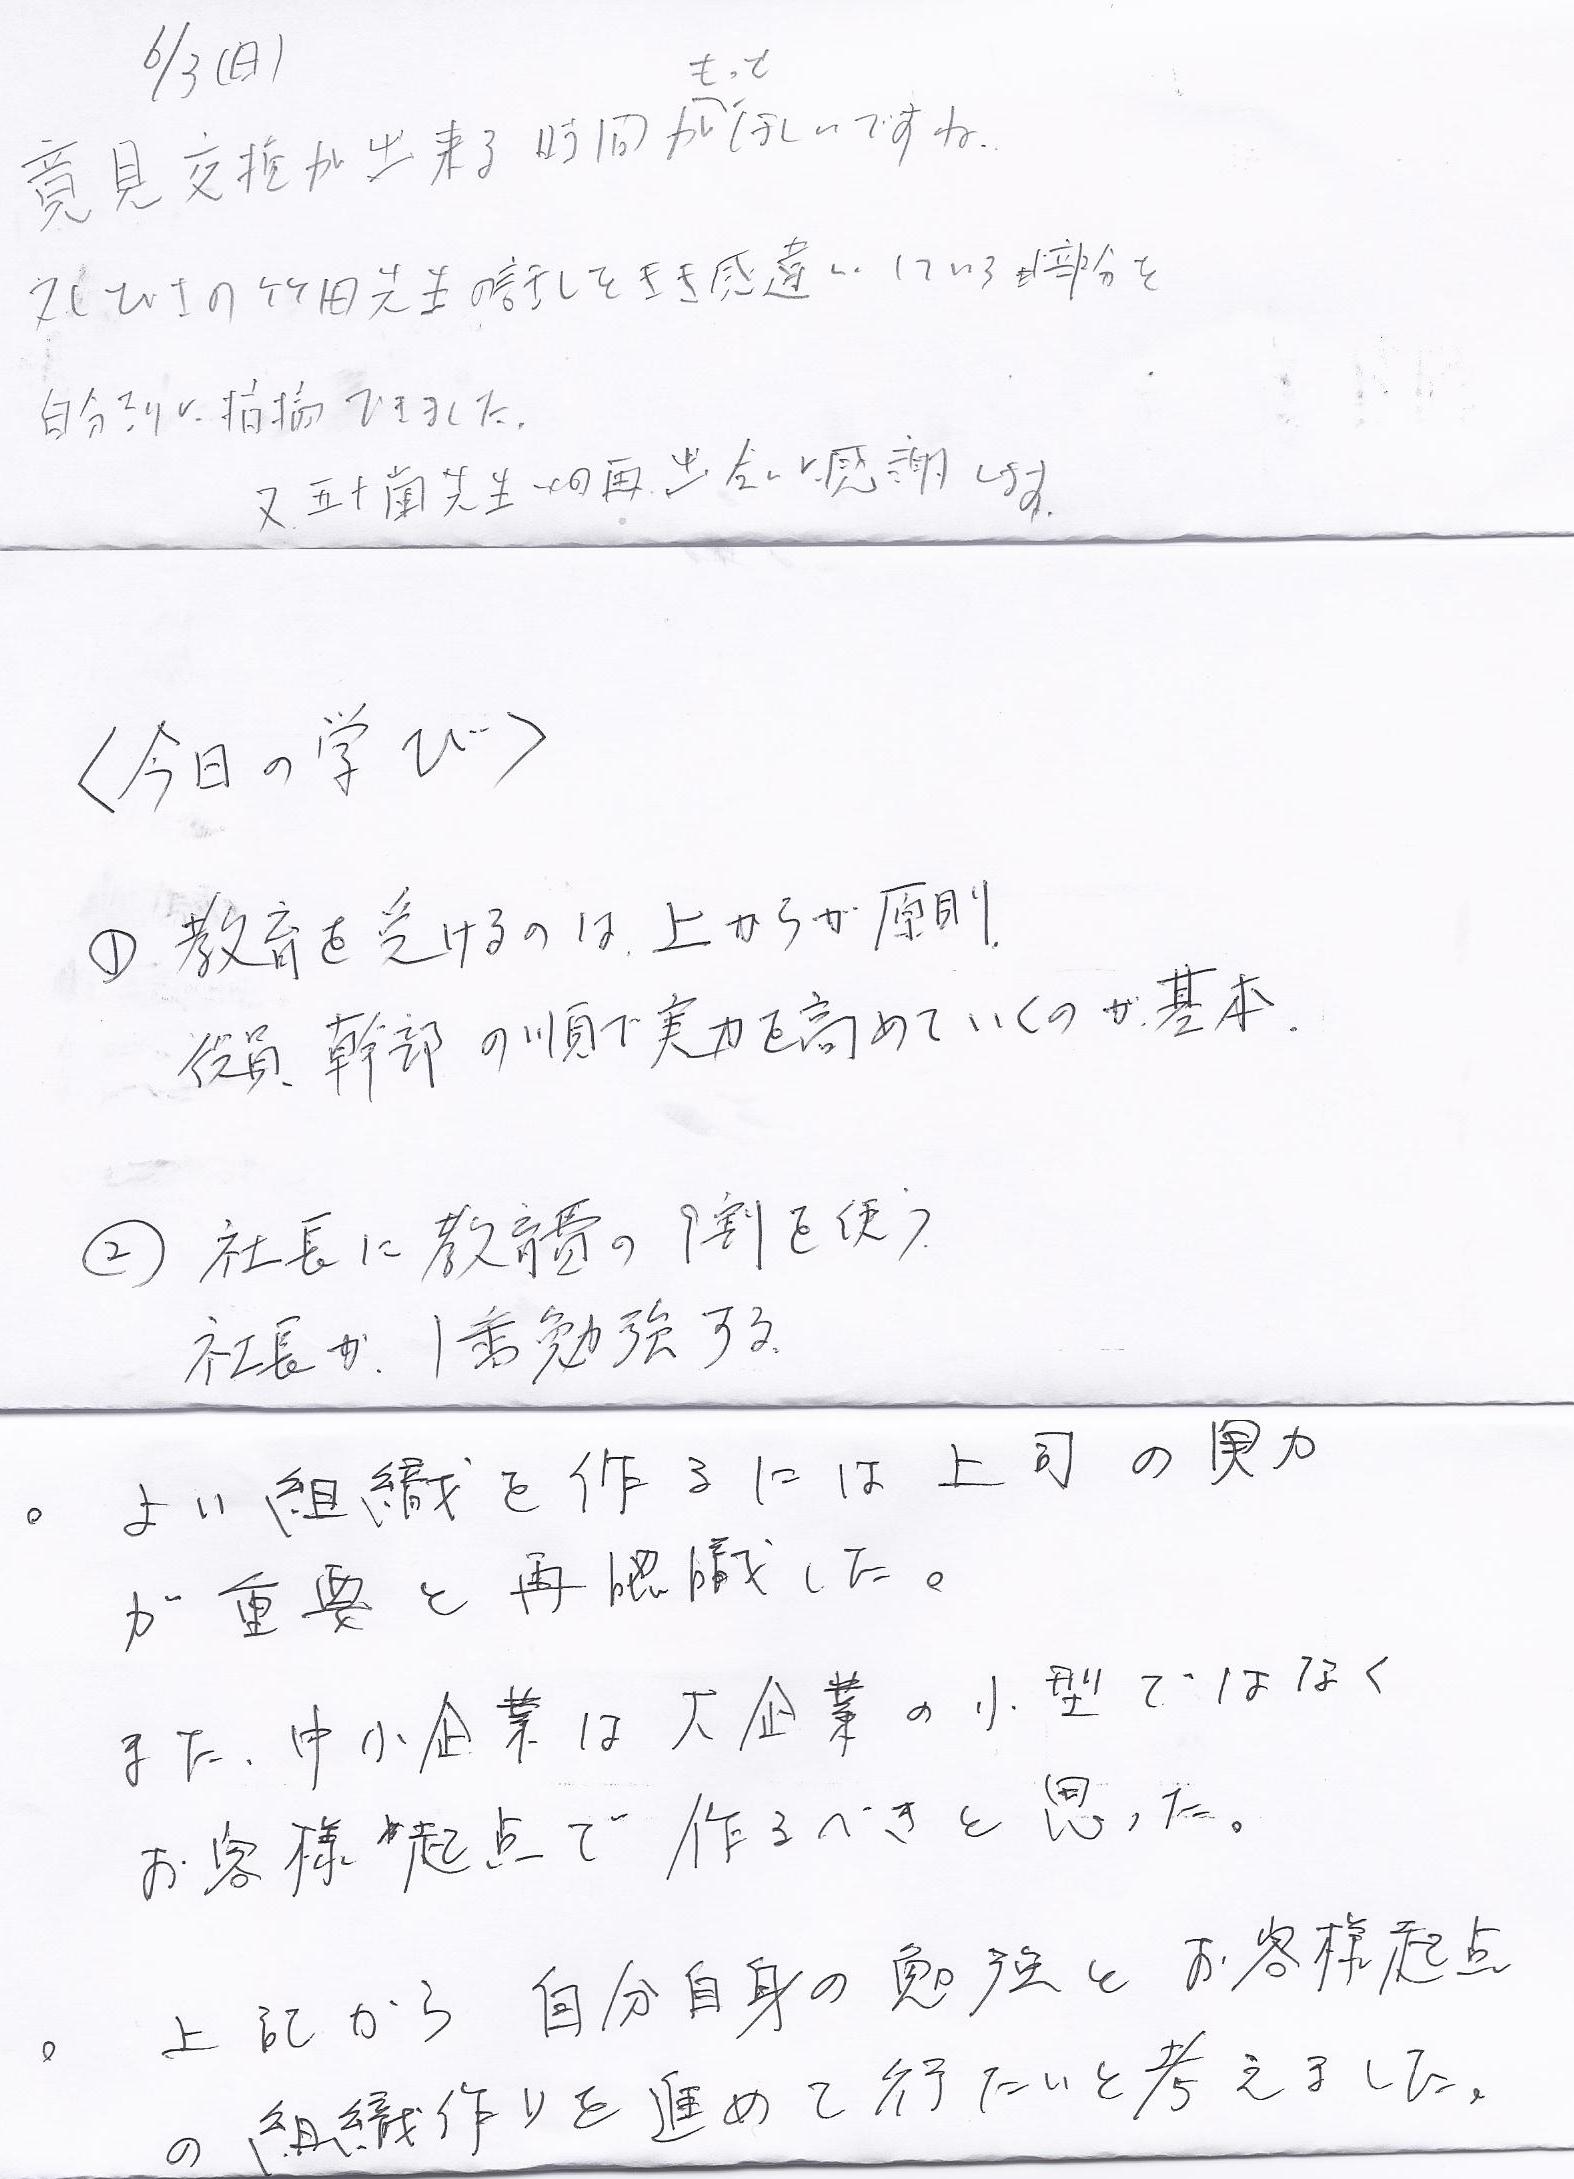 6/3(日)
もっと
意見交換が出来る時間がほしいですね.
又しびさの竹田先生の話しをきき感違いしている部分を
自分なりに指摘できました.
又 五十嵐先生との再出会いに感謝します.
〈今日の学び〉
① 教育を受けるのは、上からが原則.
役員、幹部の順で実力を高めていくのが、基本.
② 社長に教育費の9割を使う.
社長が、1番勉強する.
。よい組織を作るには上司の実力
が重要と再認識した。
また、中小企業は大企業の小型ではなく
お客様起点で作るべきと思った。
。上記から自分自身の勉強とお客様起点
の組織作りを進めて行たいと考えました。